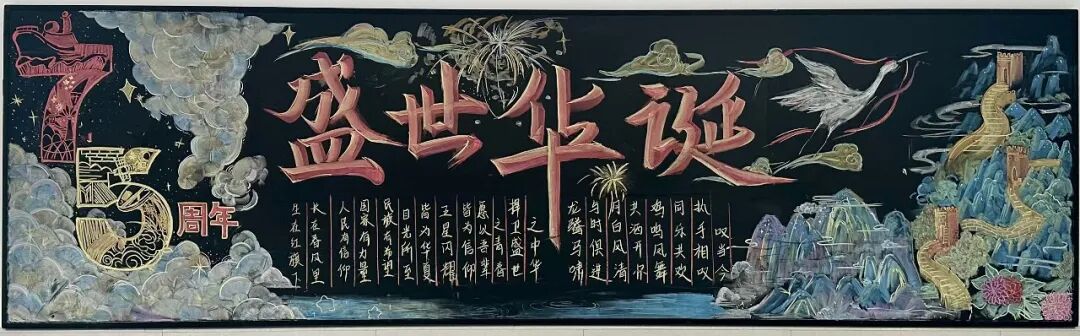 75
周年
盛世华诞
生在红旗下
长在春风里
人民有信仰
国家有力量
民族有希望
目光所至
皆为华夏
五星闪耀
皆为信仰
愿以吾辈
之青春
捍卫盛世
之中华
龙腾马啸
与时俱进
月白风清
鸡鸣凤舞
同乐共欢
执手相叹
叹当今